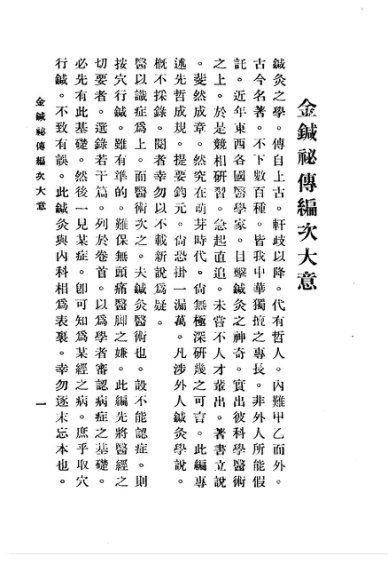 金鍼祕傳編次大意
鍼灸之學。傳自上古。軒歧以降。代有哲人。內難甲乙而外。
古今名著。不下數百種。皆我中華獨擅之專長。非外人所能假
託。近年東西各國醫學家。目擊鍼灸之神奇。實出彼科學醫術
之上。於是競相研習。急起直追。未嘗不人才輩出。著書立說
。斐然成章。然究在萌芽時代。尙無極深研幾之可言。此編專
述先哲成規。提要鈎元。尙恐掛一漏萬。凡涉外人鍼灸學說。
概不採錄。閱者幸勿以不載新說爲疑。
醫以識症爲上。而醫術次之。夫鍼灸醫術也。設不能認症。則
按穴行鍼。雖有準的。難保無頭痛醫脚之嫌。此編先將醫經之
切要者。選錄若干篇。列於卷首。以爲學者審認病症之基礎。
必先有此基礎。然後一見某症。卽可知爲某經之病。庶乎取穴
行鍼。不致有誤。此鍼灸與內科相爲表裏。幸勿逐末忘本也。
金鍼祕傳編次大意
一